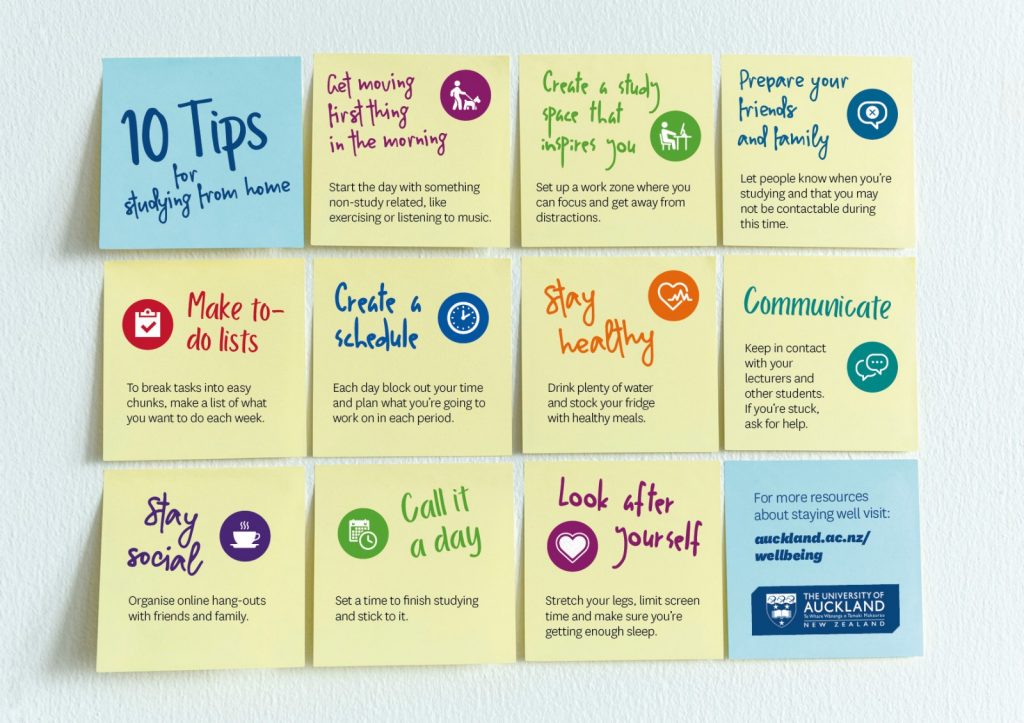 10 Tips
for
studying from home
Get moving
first thing
in the morning
Start the day with something
non-study related, like
exercising or listening to music.
Create a study
space that
inspires you
Set up a work zone where you
can focus and get away from
distractions.
Prepare your
friends
and family
Let people know when you're
studying and that you may
not be contactable during
this time.
Make to-
do lists
To break tasks into easy
chunks, make a list of what
you want to do each week.
Create a
schedule
Each day block out your time
and plan what you're going to
work on in each period.
Stay
healthy
Drink plenty of water
and stock your fridge
with healthy meals.
Communicate
Keep in contact
with your
lecturers and
other students.
If you're stuck,
ask for help.
Stay
social
Organise online hang-outs
with friends and family.
Call it
a day
Set a time to finish studying
and stick to it.
Look after
yourself
Stretch your legs, limit screen
time and make sure you're
getting enough sleep.
For more resources
about staying well visit:
auckland.ac.nz/
wellbeing
THE UNIVERSITY OF
AUCKLAND
Te Whare Wānanga o Tāmaki Makaurau
NEW ZEALAND